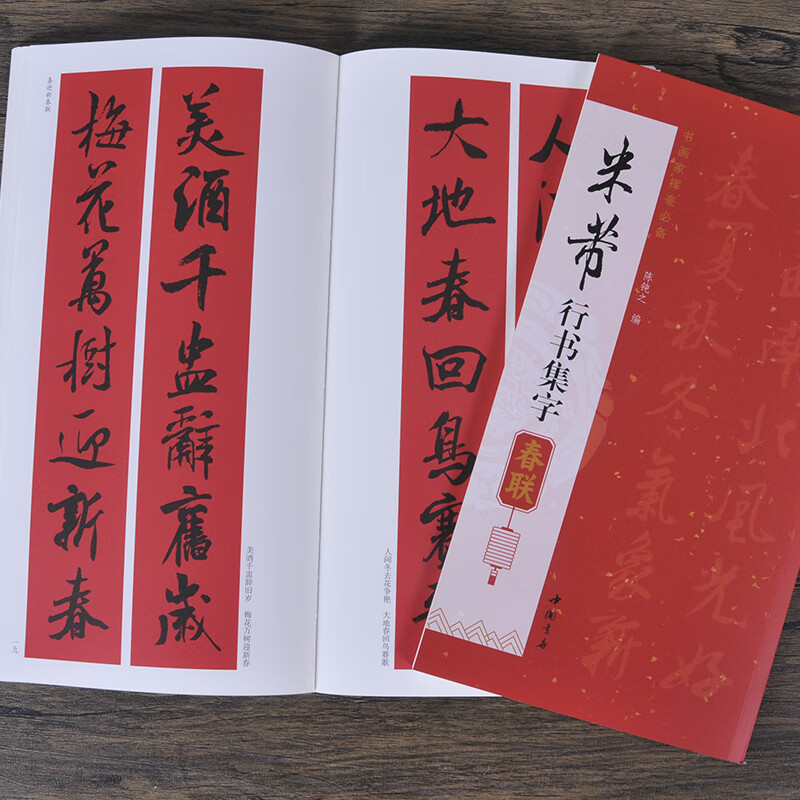 喜迎新春联
美酒千盅辭舊歲
梅花萬樹迎新春
美酒千盅辞旧岁 梅花万树迎新春
一九
人
大地春回鳥賽
人间冬去花争艳 大地春回鸟赛歌
书画家挥毫必备
米芾
行书集字
春联
陈钝之 编
中国书店
南北風光好
春夏秋冬氣象新